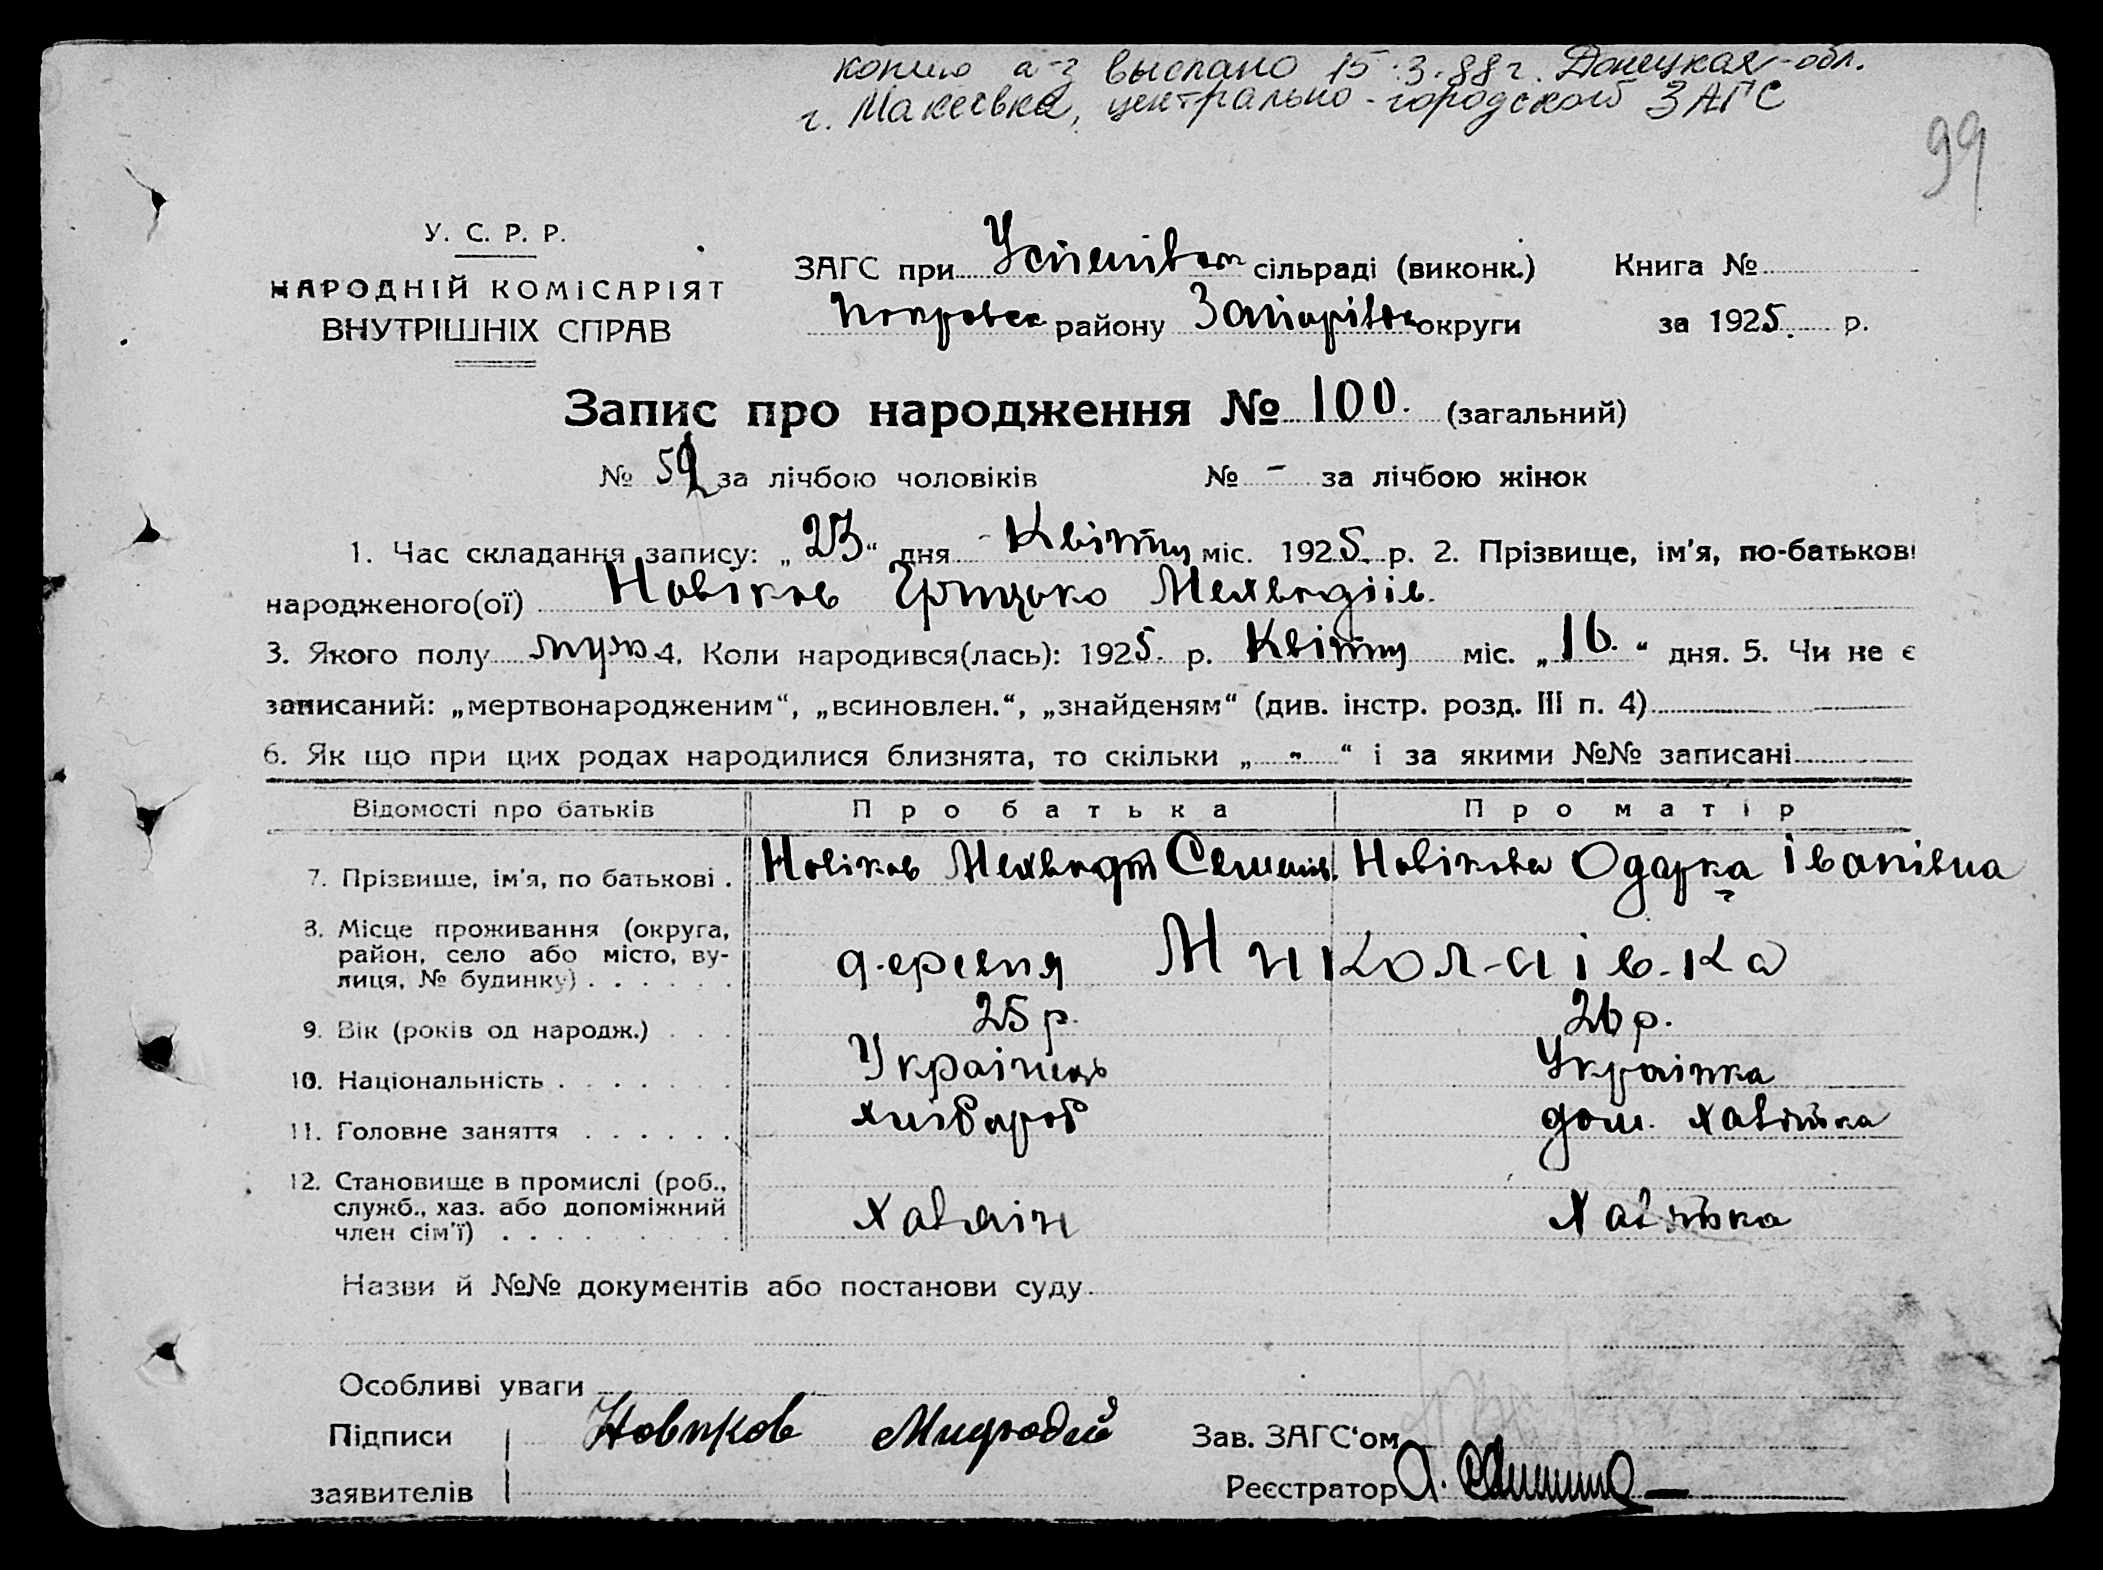 копию а-з выслано 15.3.88г. Донецкая обл.
г. Макеевка, центрально-городской ЗАГС
99
У. С. Р. Р.
НАРОДНІЙ КОМІСАРІЯТ
ВНУТРІШНІХ СПРАВ
ЗАГС при Успенівськ сільраді (виконк.) Книга №
Покровськ району Запоріжськ округи за 1925. р.
Запис про народження № 100. (загальний)
№ 59 за лічбою чоловіків № - за лічбою жінок
1. Час складання запису: „23“ дня Квітня міс. 1925. р. 2. Прізвище, ім'я, по-батькові
народженого(ої) Новіков Грицько Мехводіів.
3. Якого полу муж 4. Коли народився(лась): 1925. р. Квітня міс. „16.“ дня. 5. Чи не є
записаний: „мертвонародженим“, „всиновлен.“, „знайденям“ (див. інстр. розд. III п. 4)
6. Як що при цих родах народилися близнята, то скільки „ - “ і за якими №№ записані
Відомості про батьків Про батька Про матір
7. Прізвище, ім'я, по батькові . Новіков Мехводій Семенів. Новікова Одарка Іванівна
8. Місце проживання (округа,
район, село або місто, ву-
лиця, № будинку) . . . . . . деревня Миколаівка
9. Вік (років од народж.) . . . 25 р. 26 р.
10. Національність . . . . . . . Українець Українка
11. Головне заняття . . . . . . хлібороб дом. хазяйка
12. Становище в промислі (роб.,
служб., хаз. або допоміжний
член сім'ї) . . . . . . . . . Хазяін Хазяйка
Назви й №№ документів або постанови суду
Особливі уваги
Підписи Новиков Мифодий Зав. ЗАГС'ом
заявителів Реєстратор